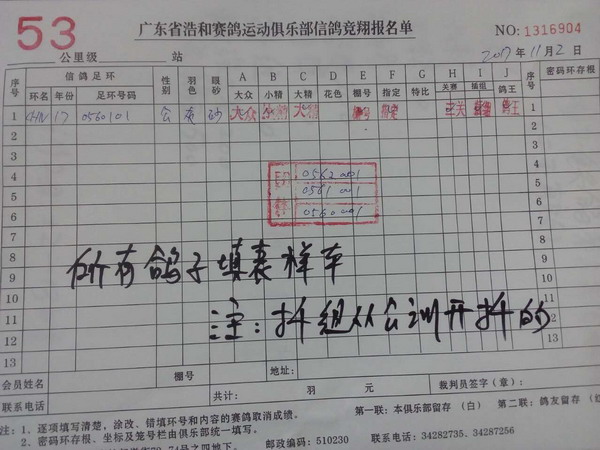 广东省浩和赛鸽运动俱乐部信鸽竞翔报名单
53 公里级 站
NO: 1316904
2017年11月2日
序号 信鸽足环 性别 羽色 眼砂 A B C D E F G H I J 序号 密码环存根
环名 年份 足环号码 大众 小精 大精 花色 栅号 指定 特比 关赛 插组 鸽王
1 CHN 17 0560101 灰 砂 大众 大精 栅号 指定 鸽王 1
2 2
3 3
4 4
0562001
5 5
0561001
6 6
0560001
7 7
8 8
所有鸽子填表样本
9 9
10 10
11 11
注：抖组从会训开抖的
12 12
13 13
会员姓名 栅号 地址：
联系电话 共计： 羽 元 裁判员签字（章）：
注：1、逐项填写清楚，涂改、错填环号和内容的赛鸽取消成绩。 第一联：本俱乐部留存（白） 第二联：鸽友留存（红
2、密码环存根、坐标及笼号栏由俱乐部统一填写。
邮政编码：510230 联系电话：34282735、34287256